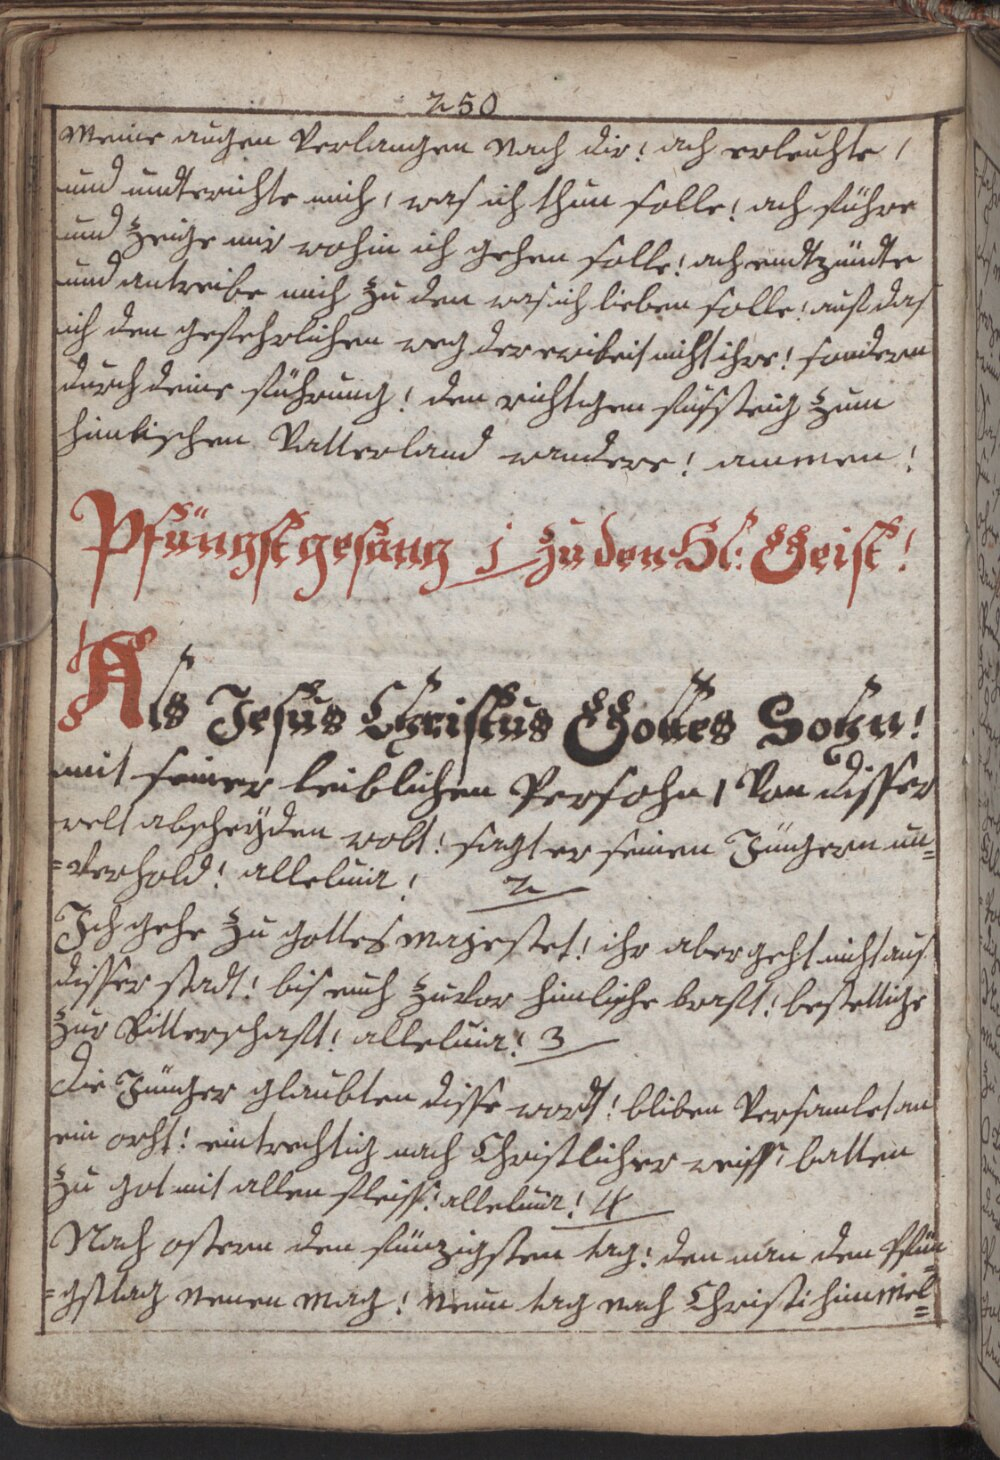 250
Meine augen Verlangen Nach dir! ach erleuchte /
und undterichte mich, was ich thun solle! ach führe
und Zeige mir wohin ich gehen solle! ach endtzündte
und antreibe mich zu den was ich lieben solle! auf das
ich den gefehrlichen weg der ewikeit nicht ihre! sondern
durch deine führung! den richtigen fussteig zum
himlischen Vatterland wandere! ammen!
Pfüngst gesang 1 zu den Hl: Geist!
Als Jesus Christus Gottes Sohn!
mit seiner leiblichen Persohn / Von disser
welt abscheyden wolt! sagt er seinen Jüngern un=
=Verhold! alleluia! 2
Ich gehe zu gottes Majestet! ihr aber geht nicht aus
disser stadt! bis euch zuvor himlische kraft! bestettiche
zur Ritterschaft! alleluia! 3
Die Jünger glaubten disse wordt! bliben Versamlet an
ein orht! eintrechtig nach Christlicher weiss! batten
zu got mit allen fleiss! alleluia! 4
Nach ostern den fünzigsten tag! den man den Pfün=
=gstag Nenen Mag! Neun tag nach Christi himmel=